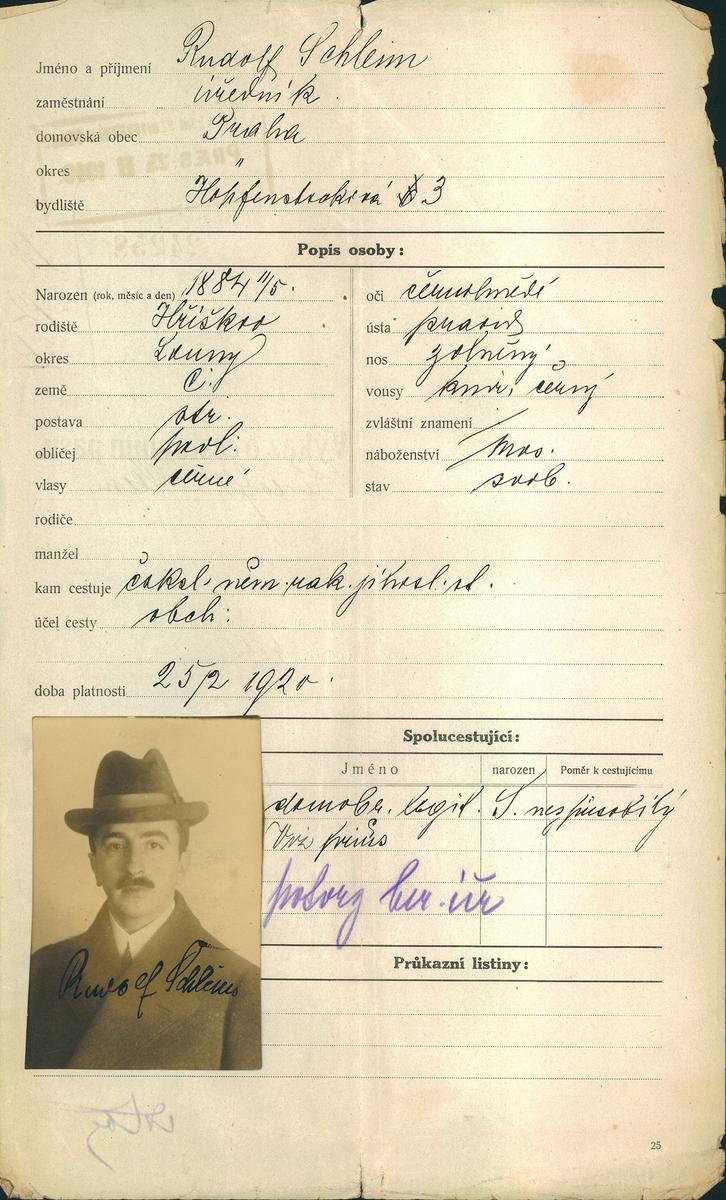 Jméno a příjmení Rudolf Schleim
zaměstnání úředník
domovská obec Praha
okres "
bydliště 3
Popis osoby:
Narozen (rok, měsíc a den) 1884 11/5.
rodiště Hříškov
okres Louny
země Č.
postava stř.
obličej podl.
vlasy černé
oči černohnědé
ústa pravid
nos
vousy knír, černý
zvláštní znamení /
náboženství mos.
stav svob.
rodiče
manžel
kam cestuje čsksl. něm. rak. jihosl. st.
účel cesty obch:
doba platnosti 25/2 1920.
Spolucestující:
Jméno narozen Poměr k cestujícímu
domobr. legit. S. nezpůsobilý
Viz
potvrz ber. úř
Průkazní listiny:
Rudolf Schleim
25